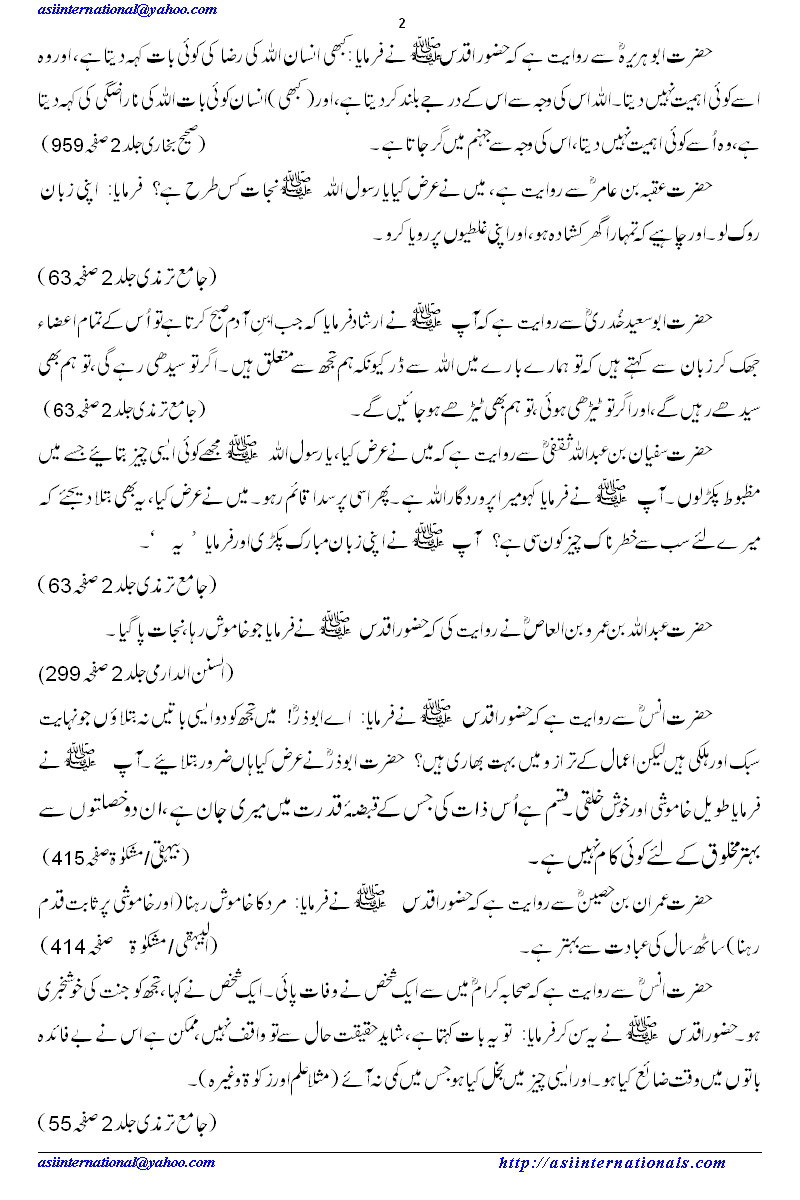 asiinternational@yahoo.com
2
حضرت ابو ہریرہؓ سے روایت ہے کہ حضور اقدس ﷺ نے فرمایا: کبھی انسان اللہ کی رضا کی کوئی بات کہہ دیتا ہے، اور وہ
اسے کوئی اہمیت نہیں دیتا۔ اللہ اس کی وجہ سے اس کے درجے بلند کر دیتا ہے، اور (کبھی) انسان کوئی بات اللہ کی ناراضگی کی کہہ دیتا
ہے، وہ اُسے کوئی اہمیت نہیں دیتا، اس کی وجہ سے جہنم میں گر جاتا ہے۔ (صحیح بخاری جلد 2 صفحہ 959)
حضرت عقبہ بن عامرؓ سے روایت ہے، میں نے عرض کیا یا رسول اللہ ﷺ نجات کس طرح ہے؟ فرمایا: اپنی زبان
روک لو۔ اور چاہیے کہ تمہارا گھر کشادہ ہو، اور اپنی غلطیوں پر رویا کرو۔
(جامع ترمذی جلد 2 صفحہ 63)
حضرت ابو سعید خُدریؓ سے روایت ہے کہ آپ ﷺ نے ارشاد فرمایا کہ جب ابنِ آدم صبح کرتا ہے تو اُس کے تمام اعضاء
جھک کر زبان سے کہتے ہیں کہ تو ہمارے بارے میں اللہ سے ڈر کیونکہ ہم تجھ سے متعلق ہیں۔ اگر تو سیدھی رہے گی، تو ہم بھی
سیدھے رہیں گے، اور اگر تو ٹیڑھی ہوئی، تو ہم بھی ٹیڑھے ہو جائیں گے۔ (جامع ترمذی جلد 2 صفحہ 63)
حضرت سفیان بن عبداللہ ثقفیؓ سے روایت ہے کہ میں نے عرض کیا، یا رسول اللہ ﷺ مجھے کوئی ایسی چیز بتائیے جسے میں
مظبوط پکڑ لوں۔ آپ ﷺ نے فرمایا کہو میرا پروردگار اللہ ہے۔ پھر اسی پر سدا قائم رہو۔ میں نے عرض کیا، یہ بھی بتلا دیجئے کہ
میرے لئے سب سے خطرناک چیز کون سی ہے؟ آپ ﷺ نے اپنی زبان مبارک پکڑی اور فرمایا ’ یہ ‘۔
(جامع ترمذی جلد 2 صفحہ 63)
حضرت عبداللہ بن عمرو بن العاصؓ نے روایت کی کہ حضور اقدس ﷺ نے فرمایا جو خاموش رہا، نجات پا گیا۔
(السنن الدارمی جلد 2 صفحہ 299)
حضرت انسؓ سے روایت ہے کہ حضور اقدس ﷺ نے فرمایا: اے ابوذرؓ! میں تجھ کو دو ایسی باتیں نہ بتلاؤں جو نہایت
سبک اور ہلکی ہیں لیکن اعمال کے ترازو میں بہت بھاری ہیں؟ حضرت ابوذرؓ نے عرض کیا ہاں ضرور بتلائیے۔ آپ ﷺ نے
فرمایا طویل خاموشی اور خوش خلقی۔ قسم ہے اُس ذات کی جس کے قبضۂ قدرت میں میری جان ہے، ان دو خصلتوں سے
بہتر مخلوق کے لئے کوئی کام نہیں ہے۔ (بیہقی/مشکوٰۃ صفحہ 415)
حضرت عمران بن حصینؓ سے روایت ہے کہ حضور اقدس ﷺ نے فرمایا: مرد کا خاموش رہنا (اور خاموشی پر ثابت قدم
رہنا) ساٹھ سال کی عبادت سے بہتر ہے۔ (البیہقی/مشکوٰۃ صفحہ 414)
حضرت انسؓ سے روایت ہے کہ صحابہ کرامؓ میں سے ایک شخص نے وفات پائی۔ ایک شخص نے کہا، تجھ کو جنت کی خوشخبری
ہو۔ حضور اقدس ﷺ نے یہ سن کر فرمایا: تو یہ بات کہتا ہے، شاید حقیقت حال سے تو واقف نہیں، ممکن ہے اس نے بے فائدہ
باتوں میں وقت ضائع کیا ہو۔ اور ایسی چیز میں بخل کیا ہو جس میں کمی نہ آئے (مثلاً علم اور زکوٰۃ وغیرہ)۔
(جامع ترمذی جلد 2 صفحہ 55)
asiinternational@yahoo.com http://asiinternationals.com